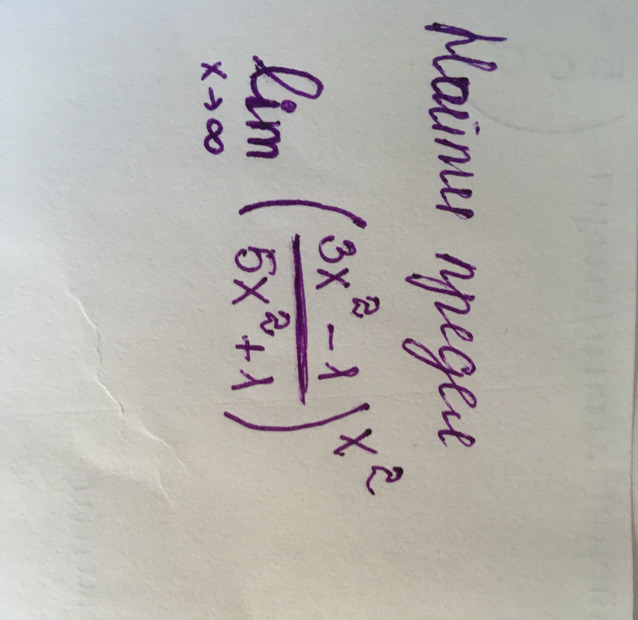 Найти предел
lim x→∞ ((3x² - 1)/(5x² + 1))^x²